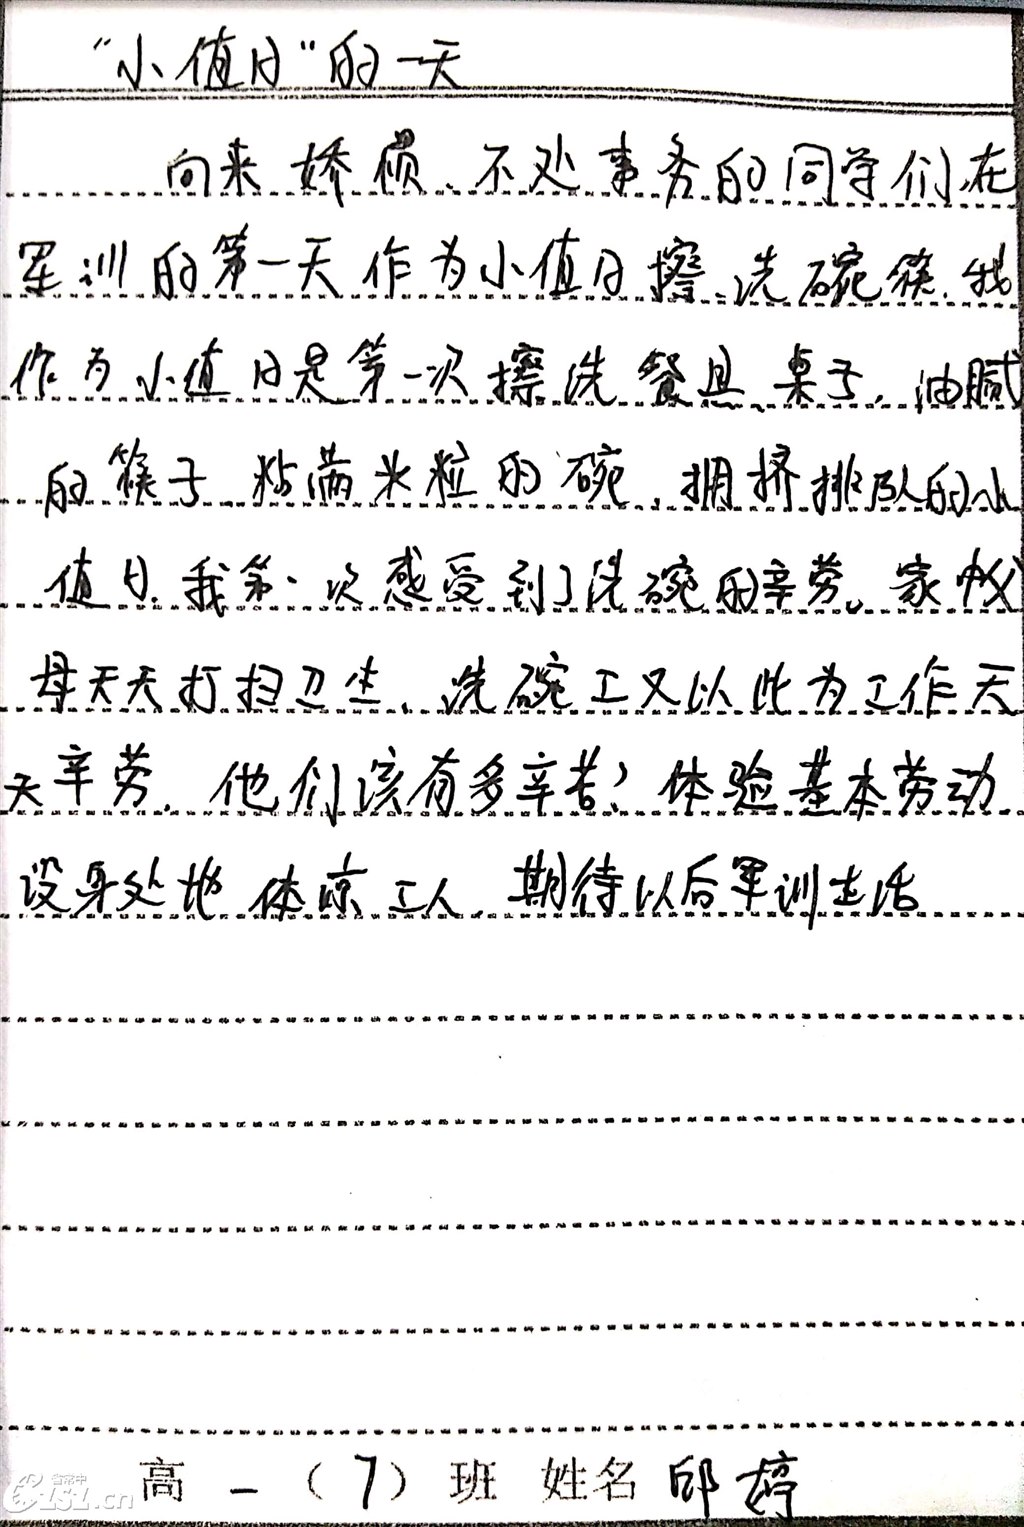 “小值日”的一天
向来娇惯、不处事务的同学们,在
军训的第一天作为小值日擦、洗碗筷.我
作为小值日是第一次擦洗餐具、桌子.油腻
的筷子、粘满米粒的碗,拥挤排队的小
值日.我第一次感受到了洗碗的辛劳。家中父
母天天打扫卫生、洗碗工又以此为工作天
天辛劳.他们该有多辛苦?体验基本劳动.
设身处地体谅工人.期待以后军训生活
高一(7)班 姓名 邱婷
省常中
CZ1SZ.cn